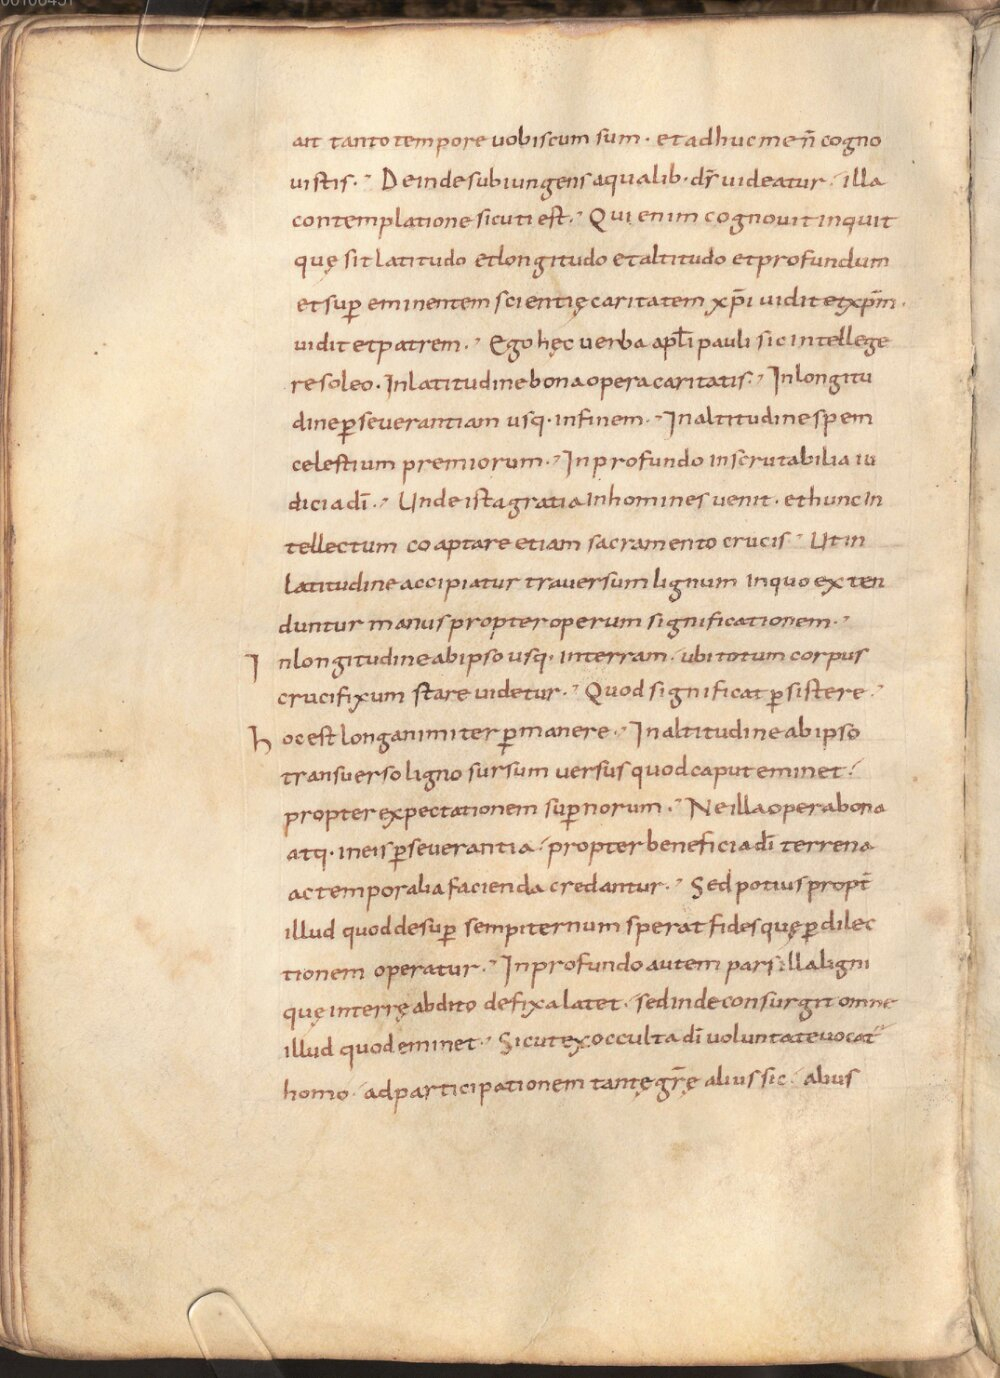 ait tanto tempore uobiscum sum · et adhuc me n̄ cogno
uistis · Deinde subiungens a qualib · dr̄ uideatur · illa
contemplatione sicuti est · Qui enim cognouit inquit
quę sit latitudo et longitudo et altitudo et profundum
et suꝑ eminentem scientię caritatem xp̄i uidit et xp̄m ·
uidit et patrem · Ego hęc uerba apłi pauli sic intellege
re soleo · In latitudine bona opera caritatis · In longitu
dine ꝑseuerantiam usq · in finem · In altitudine spem
celestium premiorum · In profundo inscrutabilia iu
dicia dī · Unde ista gratia in homines uenit · et hunc in
tellectum coaptare etiam sacramento crucis · Ut in
latitudine accipiatur trauersum lignum in quo exten
duntur manus propter operum significationem ·
In longitudine ab ipso usq · in terram · ubi totum corpus
crucifixum stare uidetur · Quod significat ꝑsistere ·
hoc est longanimiter ꝑmanere · In altitudine ab ipso
transuerso ligno sursum uersus quod caput eminet ·
propter expectationem suꝑnorum · Ne illa opera bona
atq · in eis ꝑseuerantia · propter beneficia dī terrena
ac temporalia facienda credantur · Sed potius propt̄
illud quod desuꝑ sempiternum sperat fides quę ꝑ dilec
tionem operatur · In profundo autem pars illa ligni
quę in terrę abdito defixa latet · sed inde consurgit omne
illud quod eminet · Sicut ex occulta dī uoluntate uocat᷑
homo · ad participationem tantę gr̄ę alius sic · alius